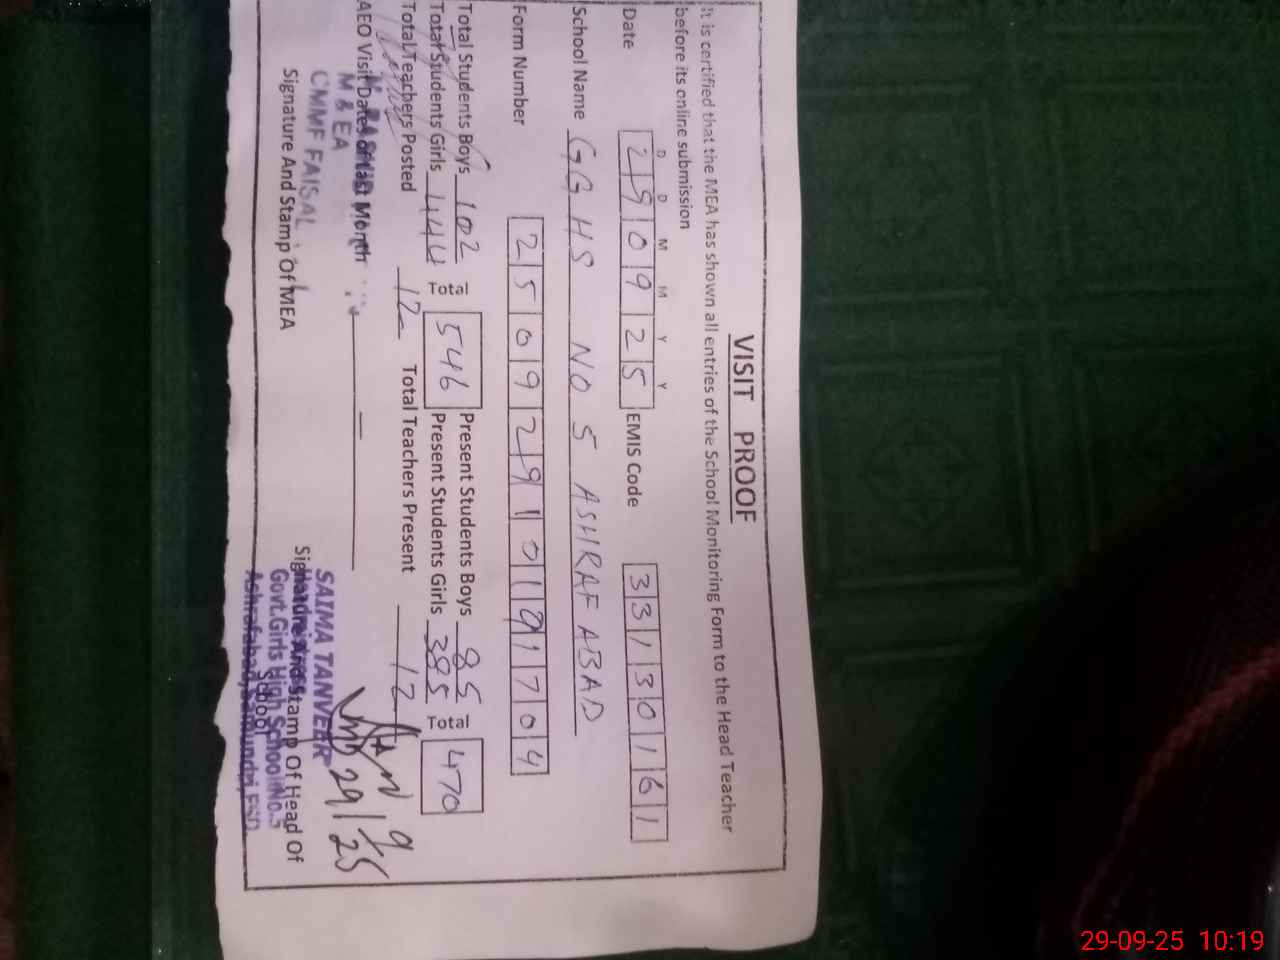 VISIT PROOF
It is certified that the MEA has shown all entries of the School Monitoring Form to the Head Teacher
before its online submission
D D M M Y Y
Date 290925 EMIS Code 33130161
School Name GGHS NO 5 ASHRAF ABAD
Form Number 2509291019 1704
Total Students Boys 102 Total 546 Present Students Boys 85 Total 470
Total Students Girls 444 Present Students Girls 385
Total Teachers Posted 12 Total Teachers Present 12
AEO Visit Dates of Last Month —
M & EA
CMMF FAISAL
Signature And Stamp Of MEA
29/9/25
SAIMA TANVEER
Signature And Stamp Of Head Of
School
Headmistress
Govt.Girls High School No.5
Ashrafabad, Samundri, FSD
29-09-25 10:19